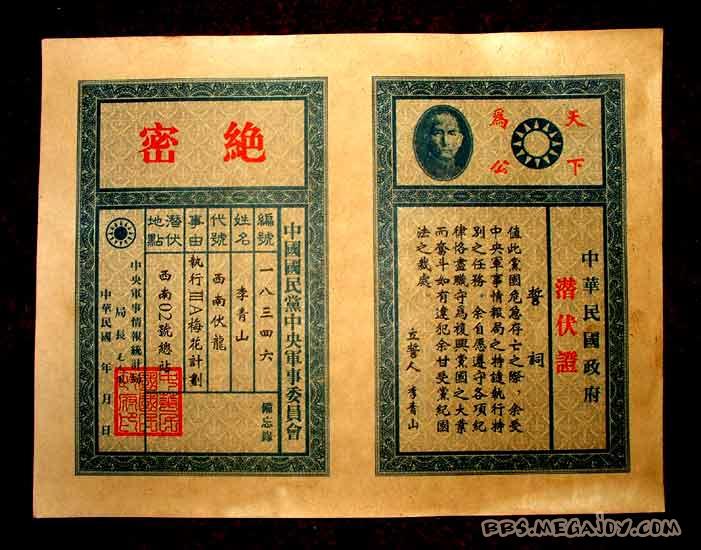 天下
為公
中華民國政府
潛伏證
誓祠
值此黨國危急存亡之際，余受
中央軍事情報局之特遣執行特
別之任務。余自愿遵守各項紀
律恪盡職守爲復興黨國之大業
而奮斗如有違犯余甘受黨紀國
法之裁處。
立誓人 李青山
絕密
中國國民黨中央軍事委員會
備忘錄
編號 一八三四六
姓名 李青山
代號 西南伏龍
事由 執行ⅢA梅花計劃
潛伏地點 西南02號總站
中央軍事情報統計局
局長
中華民國 年 月 日
BBS.MEGAJOY.COM